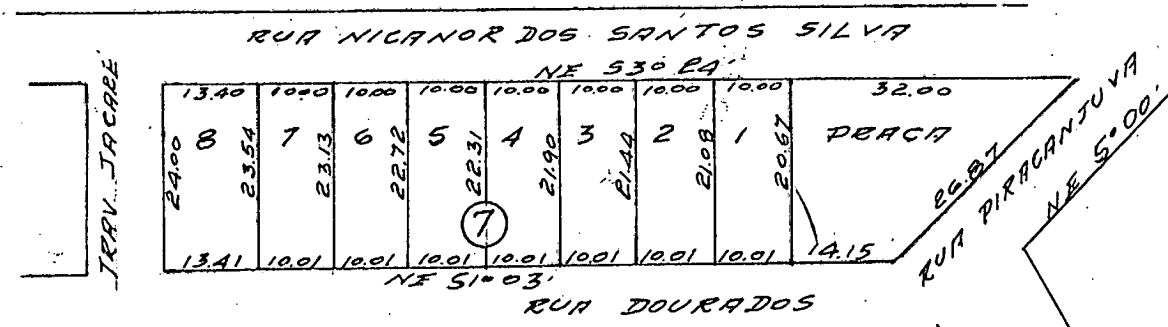 RUA NICANOR DOS SANTOS SILVA
NE 53º 24'
TRAV. JACARÉ
13.40 10.00 10.00 10.00 10.00 10.00 10.00 10.00 32.00
8 7 6 5 4 3 2 1 PRAÇA
24.00 23.54 23.13 22.72 22.31 21.90 21.44 21.08 20.67
26.87
7
13.41 10.01 10.01 10.01 10.01 10.01 10.01 10.01 14.15
NE 51º 03'
RUA DOURADOS
RUA PIRACANJUVA
NE 5º 00'